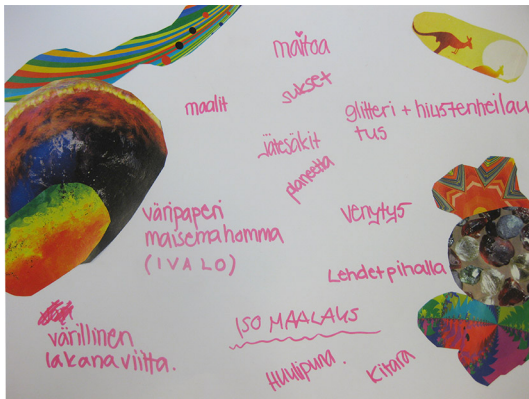 maitoa
sukset
maalit
glitteri + hiustenheilau
tus
jätesäkit
planeetta
väripaperi
maisemahomma
(IVALO)
venytys
Lehdet pihalla
ISO MAALAUS
värillinen
lakanaviitta.
Huulipuna.
Kitara